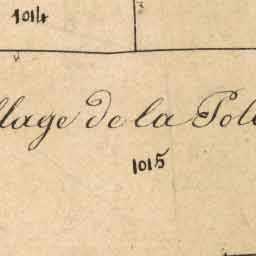 1014
llage de la Pol
1015